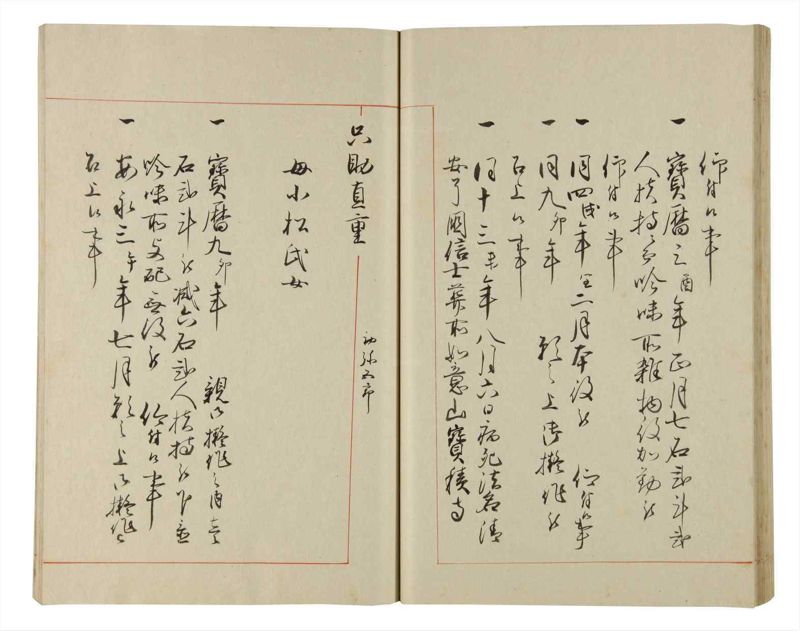 仰付候事
一 寳暦三酉年正月七石弐斗弐
人扶持ニ而吟味所雑物役加勤被
仰付候事
一 同四戌年 閏二月本役被 仰付候事
一 同九卯年 願之上御擬作被
召上候事
一 同十三未年八月六日病死法名清
安了圓信士葬所如意山寳積寺
只助直重
母小松氏女
一 寳暦九卯年 親御擬作之内
石弐斗被減六石弐人扶持被下置
吟味所支配無役被 仰付候事
一 安永三午年七月願之上御擬作被
召上候事